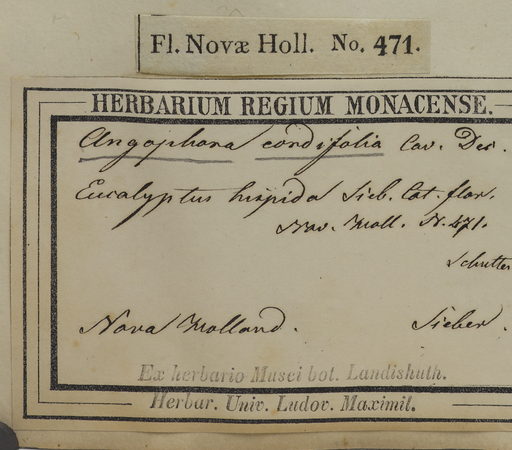 Fl. Novæ Holl. No. 471.
HERBARIUM REGIUM MONACENSE.
Angophora cordifolia Cav. Dec.
Eucalyptus hispida Sieb. Cat. flor.
Nov. Holl. N. 471.
Nova Holland. Sieber.
Ex herbario Musei bot. Landishuth.
Herbar. Univ. Ludov. Maximil.